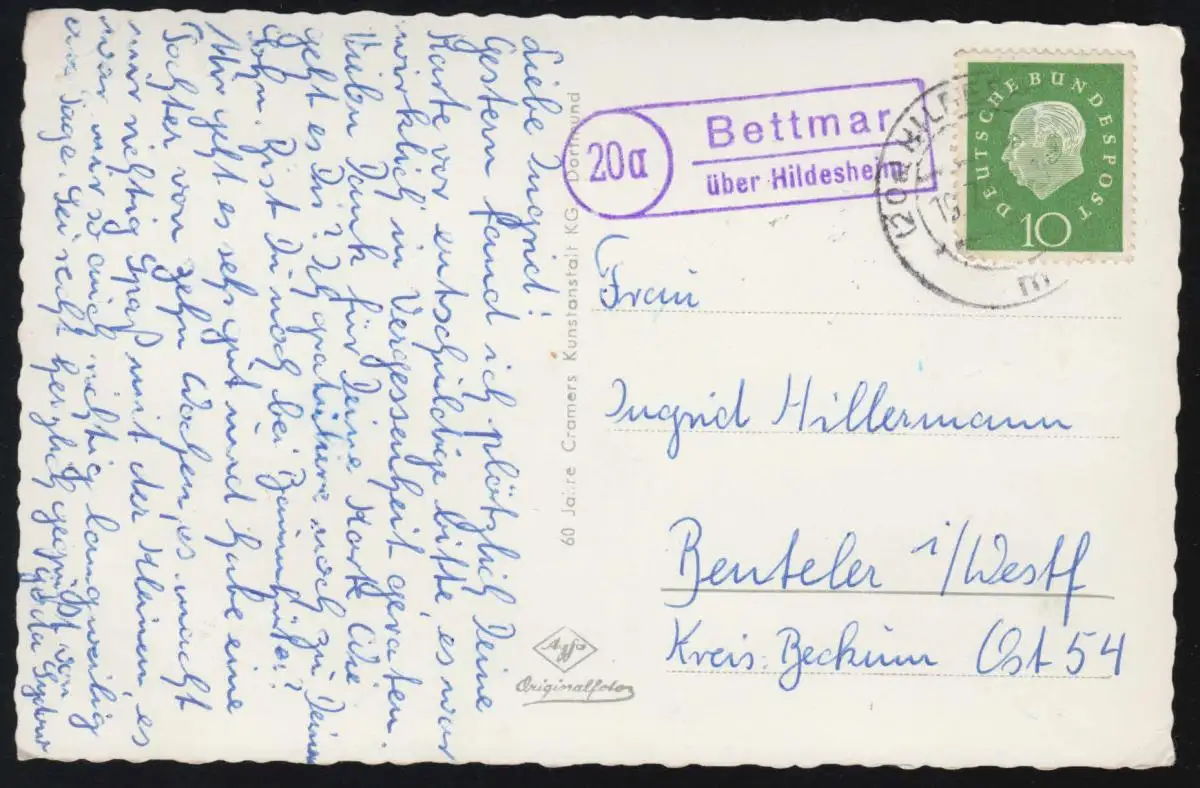 Liebe Ingrid!
Gestern fand ich plötzlich Deine
Karte vor, entschuldige bitte, es war
wirklich in Vergessenheit geraten.
Vielen Dank für Deine Karte. Wie
geht es Dir? Ich gratuliere noch zu Deinem
Sohn. Bist Du noch bei
Mir geht es sehr gut und habe eine
Tochter von zehn Wochen, es macht
mir richtig Spaß mit der Kleinen, es
war mir so auch richtig langweilig
am Tage. Sei recht herzlich gegrüßt von
Deutsche Bundespost
10
20a
Bettmar
über Hildesheim
(20a) HILDE
19
m
60 Jahre Cramers Kunstanstalt KG Dortmund
Frau
Ingrid Hillermann
Benteler i/Westf
Kreis: Beckum Ost 54
Agfa
Originalfoto